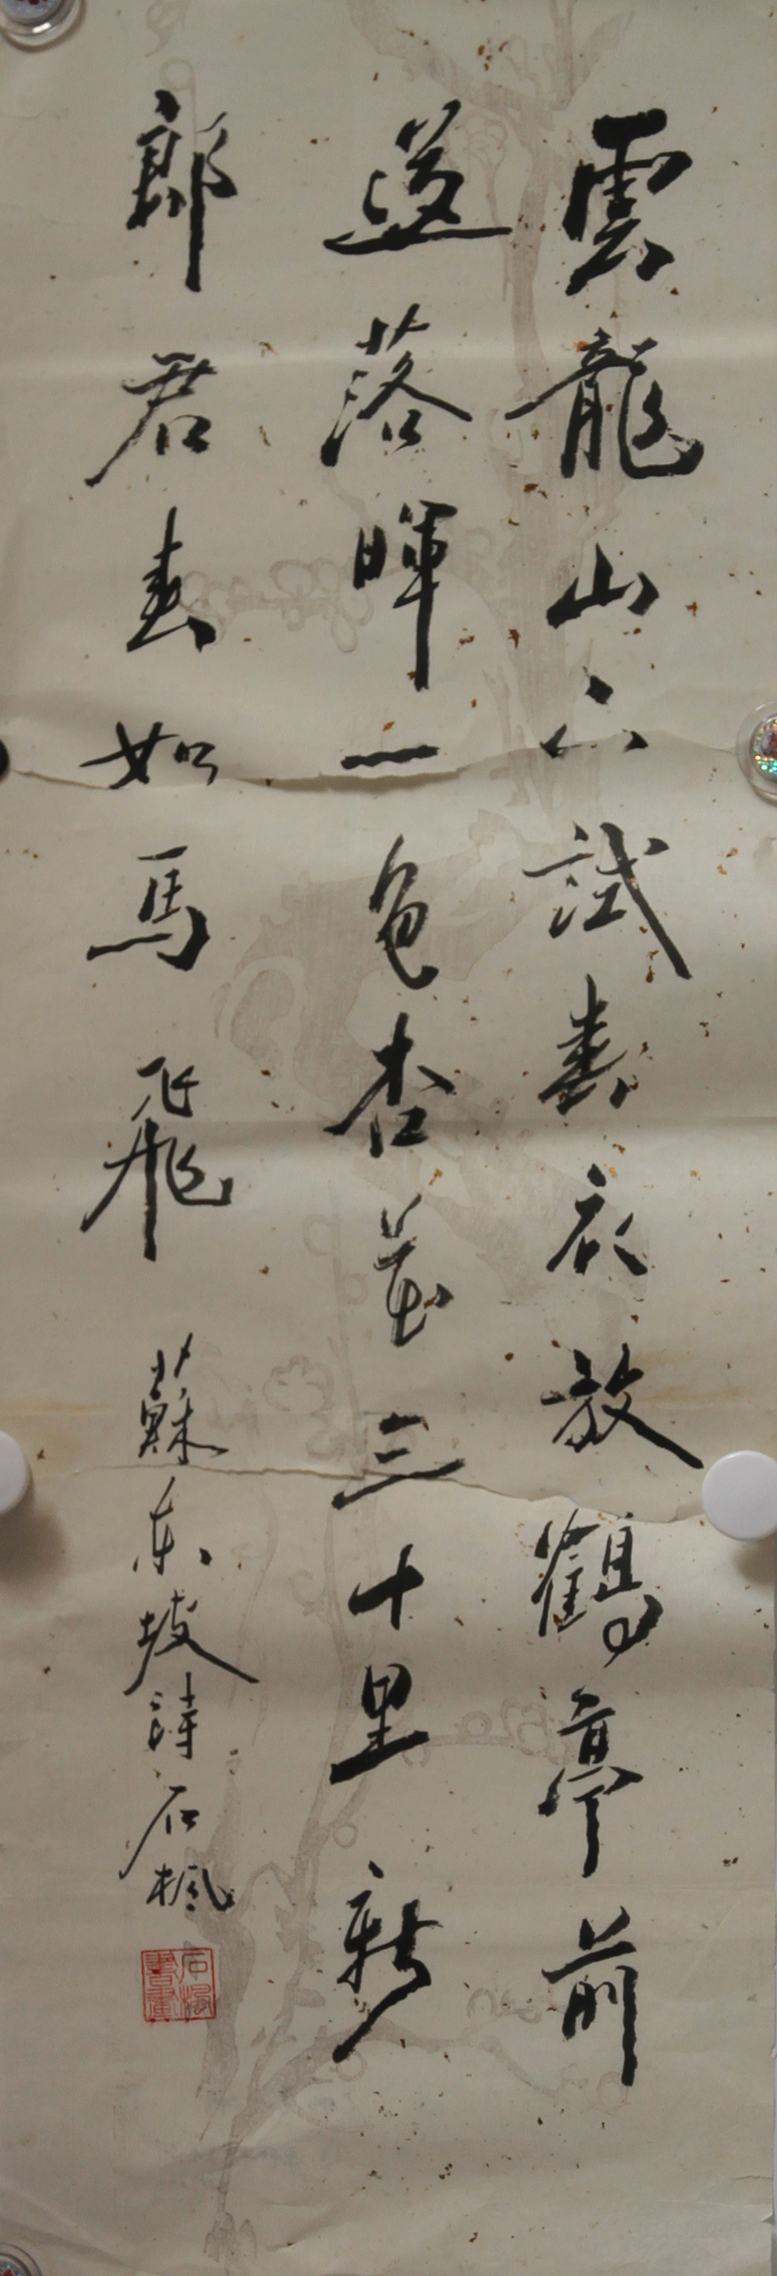 雲龍山下試春衣放鶴亭前
送落暉一色杏花三十里新
郎君去如馬飛 蘇東坡詩 石楓
石楓書畫